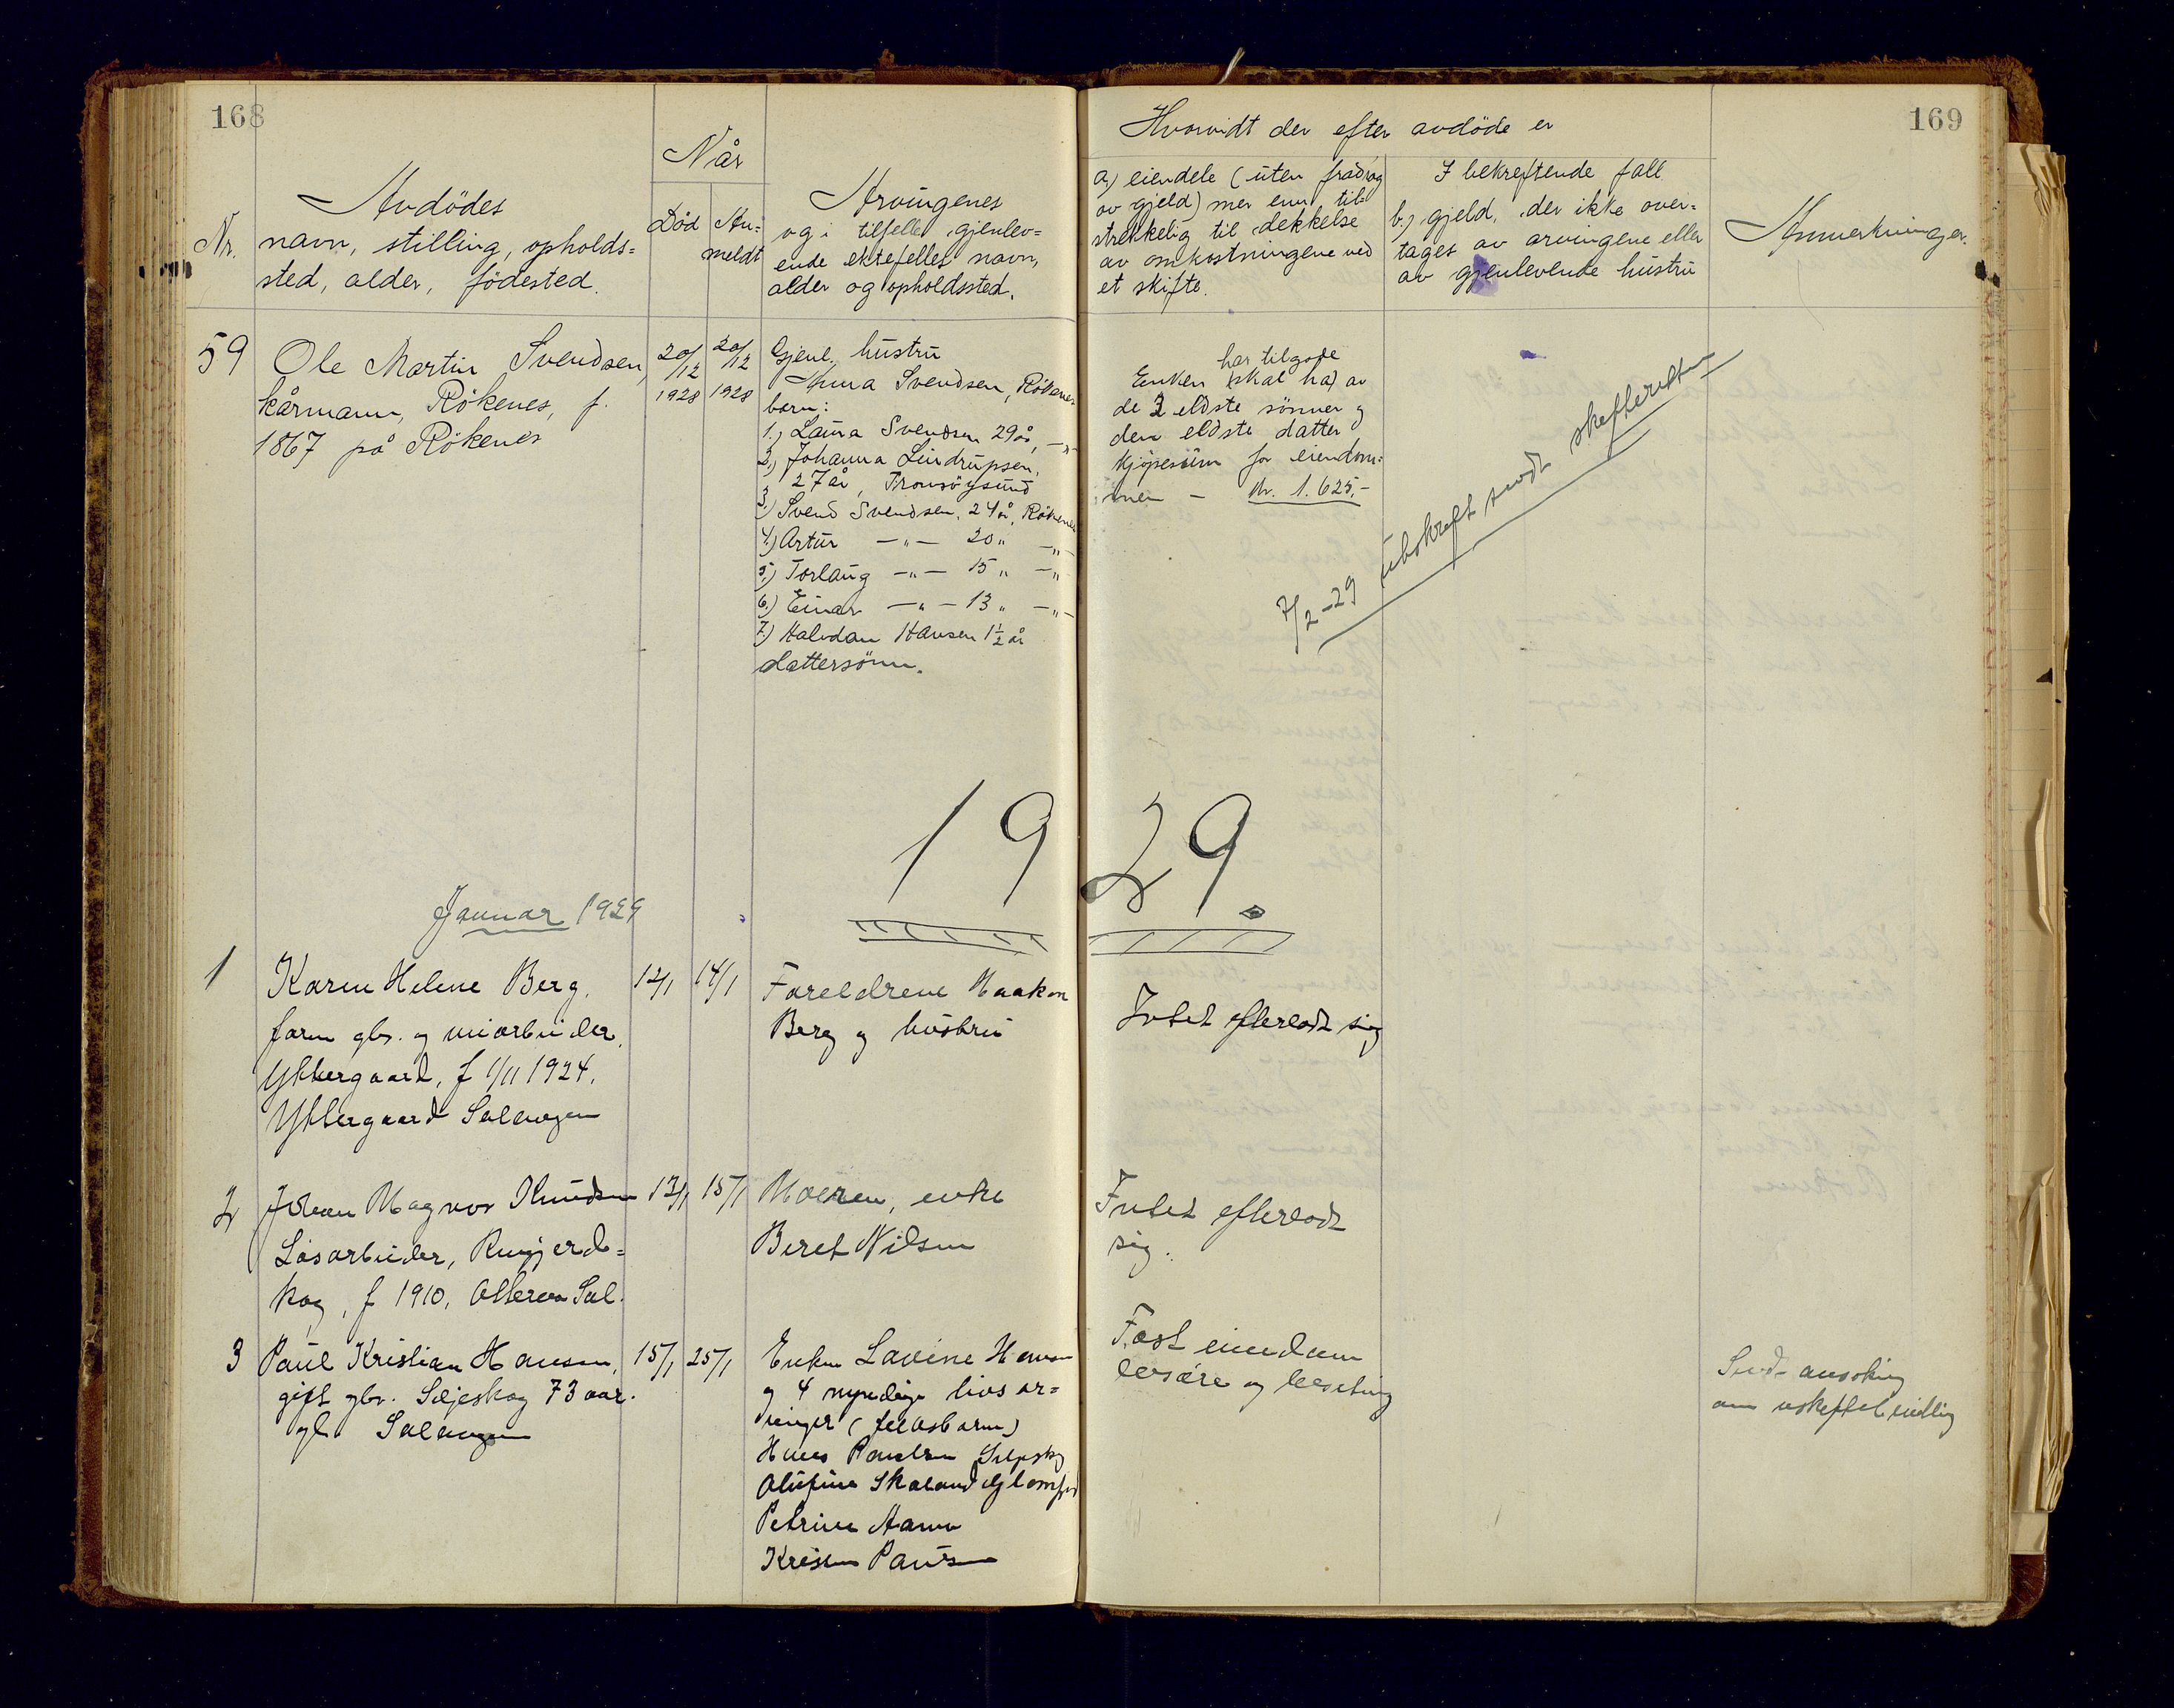 168
Når
Nr.
Avdödes
navn, stilling, opholds=
sted, alder, födested.
Död
An=
meldt
Arvingenes
og i tilfelle gjenlev=
ende ektefelles navn,
alder og opholdssted.
59
Ole Martin Svendsen,
kårmann, Rökenes, f.
1867 på Rökenes
20/12
1928
20/12
1928
Gjenl. hustru
Anna Svendsen, Rökenes
barn:
1.) Laura Svendsen 29 år, -"-
2.) Johanna Lindrupsen,
27 år, Tromsöysund
3.) Svend Svendsen, 24 år, Rökenes
4.) Artur -"- 20 " -"-
5.) Torlaug -"- 15 " -"-
6.) Einar -"- 13 " -"-
7.) Halvdan Hansen 1½ år
dattersönn.
19
Januar 1929
1
Karen Helene Berg.
farm gbr. og veiarbeider,
Yttergaard, f 1/11 1924.
Yttergaard Salangen
12/1
14/1
Foreldrene Haakon
Berg og hustru
2
Johan Magnor Knudsen
Lösarbeider,
f 1910, Sal.
13/1
15/1
Moren, enke
Beret Nilsen
3
Paul Kristian Hansen,
gift gbr. Seljeskog 73 aar.
Salangen
15/1
25/1
Enken Lavine Hansen
og 4 myndige livsar=
vinger (fellesbarn)
Hans Paulsen
Olufine Skaland
Petrine Hansen
169
Hvorvidt der efter avdöde er
a) eiendele (uten fradrag
av gjeld) mer enn til=
strekkelig til dekkelse
av omkostningene ved
et skifte.
I bekreftende fall
b.) gjeld, der ikke over=
tages av arvingene eller
av gjenlevende hustru
Anmerkninger.
har tilgode
Enken (skal ha) av
de 2 eldste sönner og
den eldste datter
kjöpesum for eiendom=
men - Kr. 1.625,-
7/2-29 utskrift sendt skifteretten
29.
Intet efterladt sig
Intet efterladt
sig.
Fast eiendom
lösöre og besetning
Sendt ansökning
om uskiftet bevilling